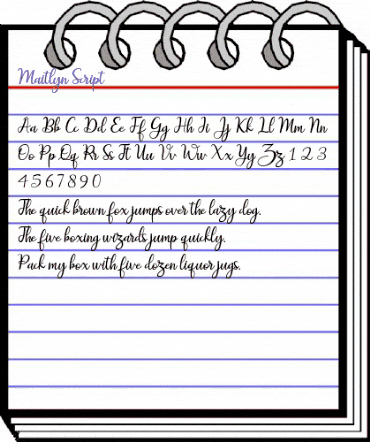 Maitlyn Script
Aa Bb Cc Dd Ee Ff Gg Hh Ii Jj Kk Ll Mm Nn
Oo Pp Qq Rr Ss Tt Uu Vv Ww Xx Yy Zz 1 2 3
4 5 6 7 8 9 0
The quick brown fox jumps over the lazy dog.
The five boxing wizards jump quickly.
Pack my box with five dozen liquor jugs.